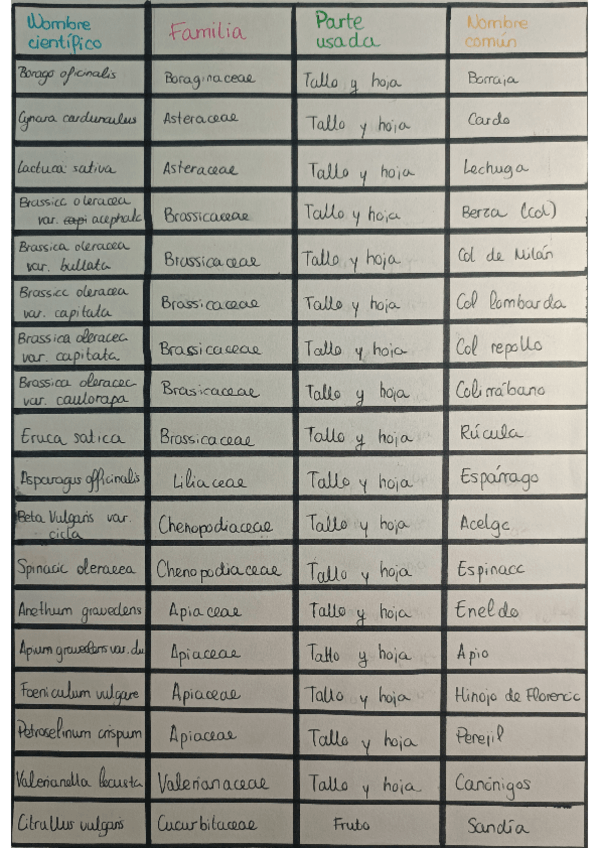 Nombre científico | Familia | Parte usada | Nombre común
Borago oficinalis | Boraginaceae | Tallo y hoja | Borraja
Cynara cardunculus | Asteraceae | Tallo y hoja | Cardo
Lactuca sativa | Asteraceae | Tallo y hoja | Lechuga
Brassica oleracea var. capi acephala | Brassicaceae | Tallo y hoja | Berza (col)
Brassica oleracea var. bullata | Brassicaceae | Tallo y hoja | Col de Milán
Brassica oleracea var. capitata | Brassicaceae | Tallo y hoja | Col lombarda
Brassica oleracea var. capitata. | Brassicaceae | Tallo y hoja | Col repollo
Brassica oleracea var. caulorapa | Brasicaceae | Tallo y hoja | Colirrábano
Eruca satica | Brassicaceae | Tallo y hoja | Rúcula
Asparagus officinalis | Liliaceae | Tallo y hoja | Espárrago
Beta Vulgaris var. cicla | Chenopodiaceae | Tallo y hoja | Acelga
Spinacia oleracea | Chenopodiaceae | Tallo y hoja | Espinaca
Anethum gravedens | Apiaceae | Tallo y hoja | Eneldo
Apium gravedens var. du | Apiaceae | Tallo y hoja | Apio
Foeniculum vulgare | Apiaceae | Tallo y hoja | Hinojo de Florencia
Petroselinum crispum | Apiaceae | Tallo y hoja | Perejil
Valerianella locusta | Valerianaceae | Tallo y hoja | Canónigos
Citrullus vulgaris | Cucurbitaceae | Fruto | Sandía